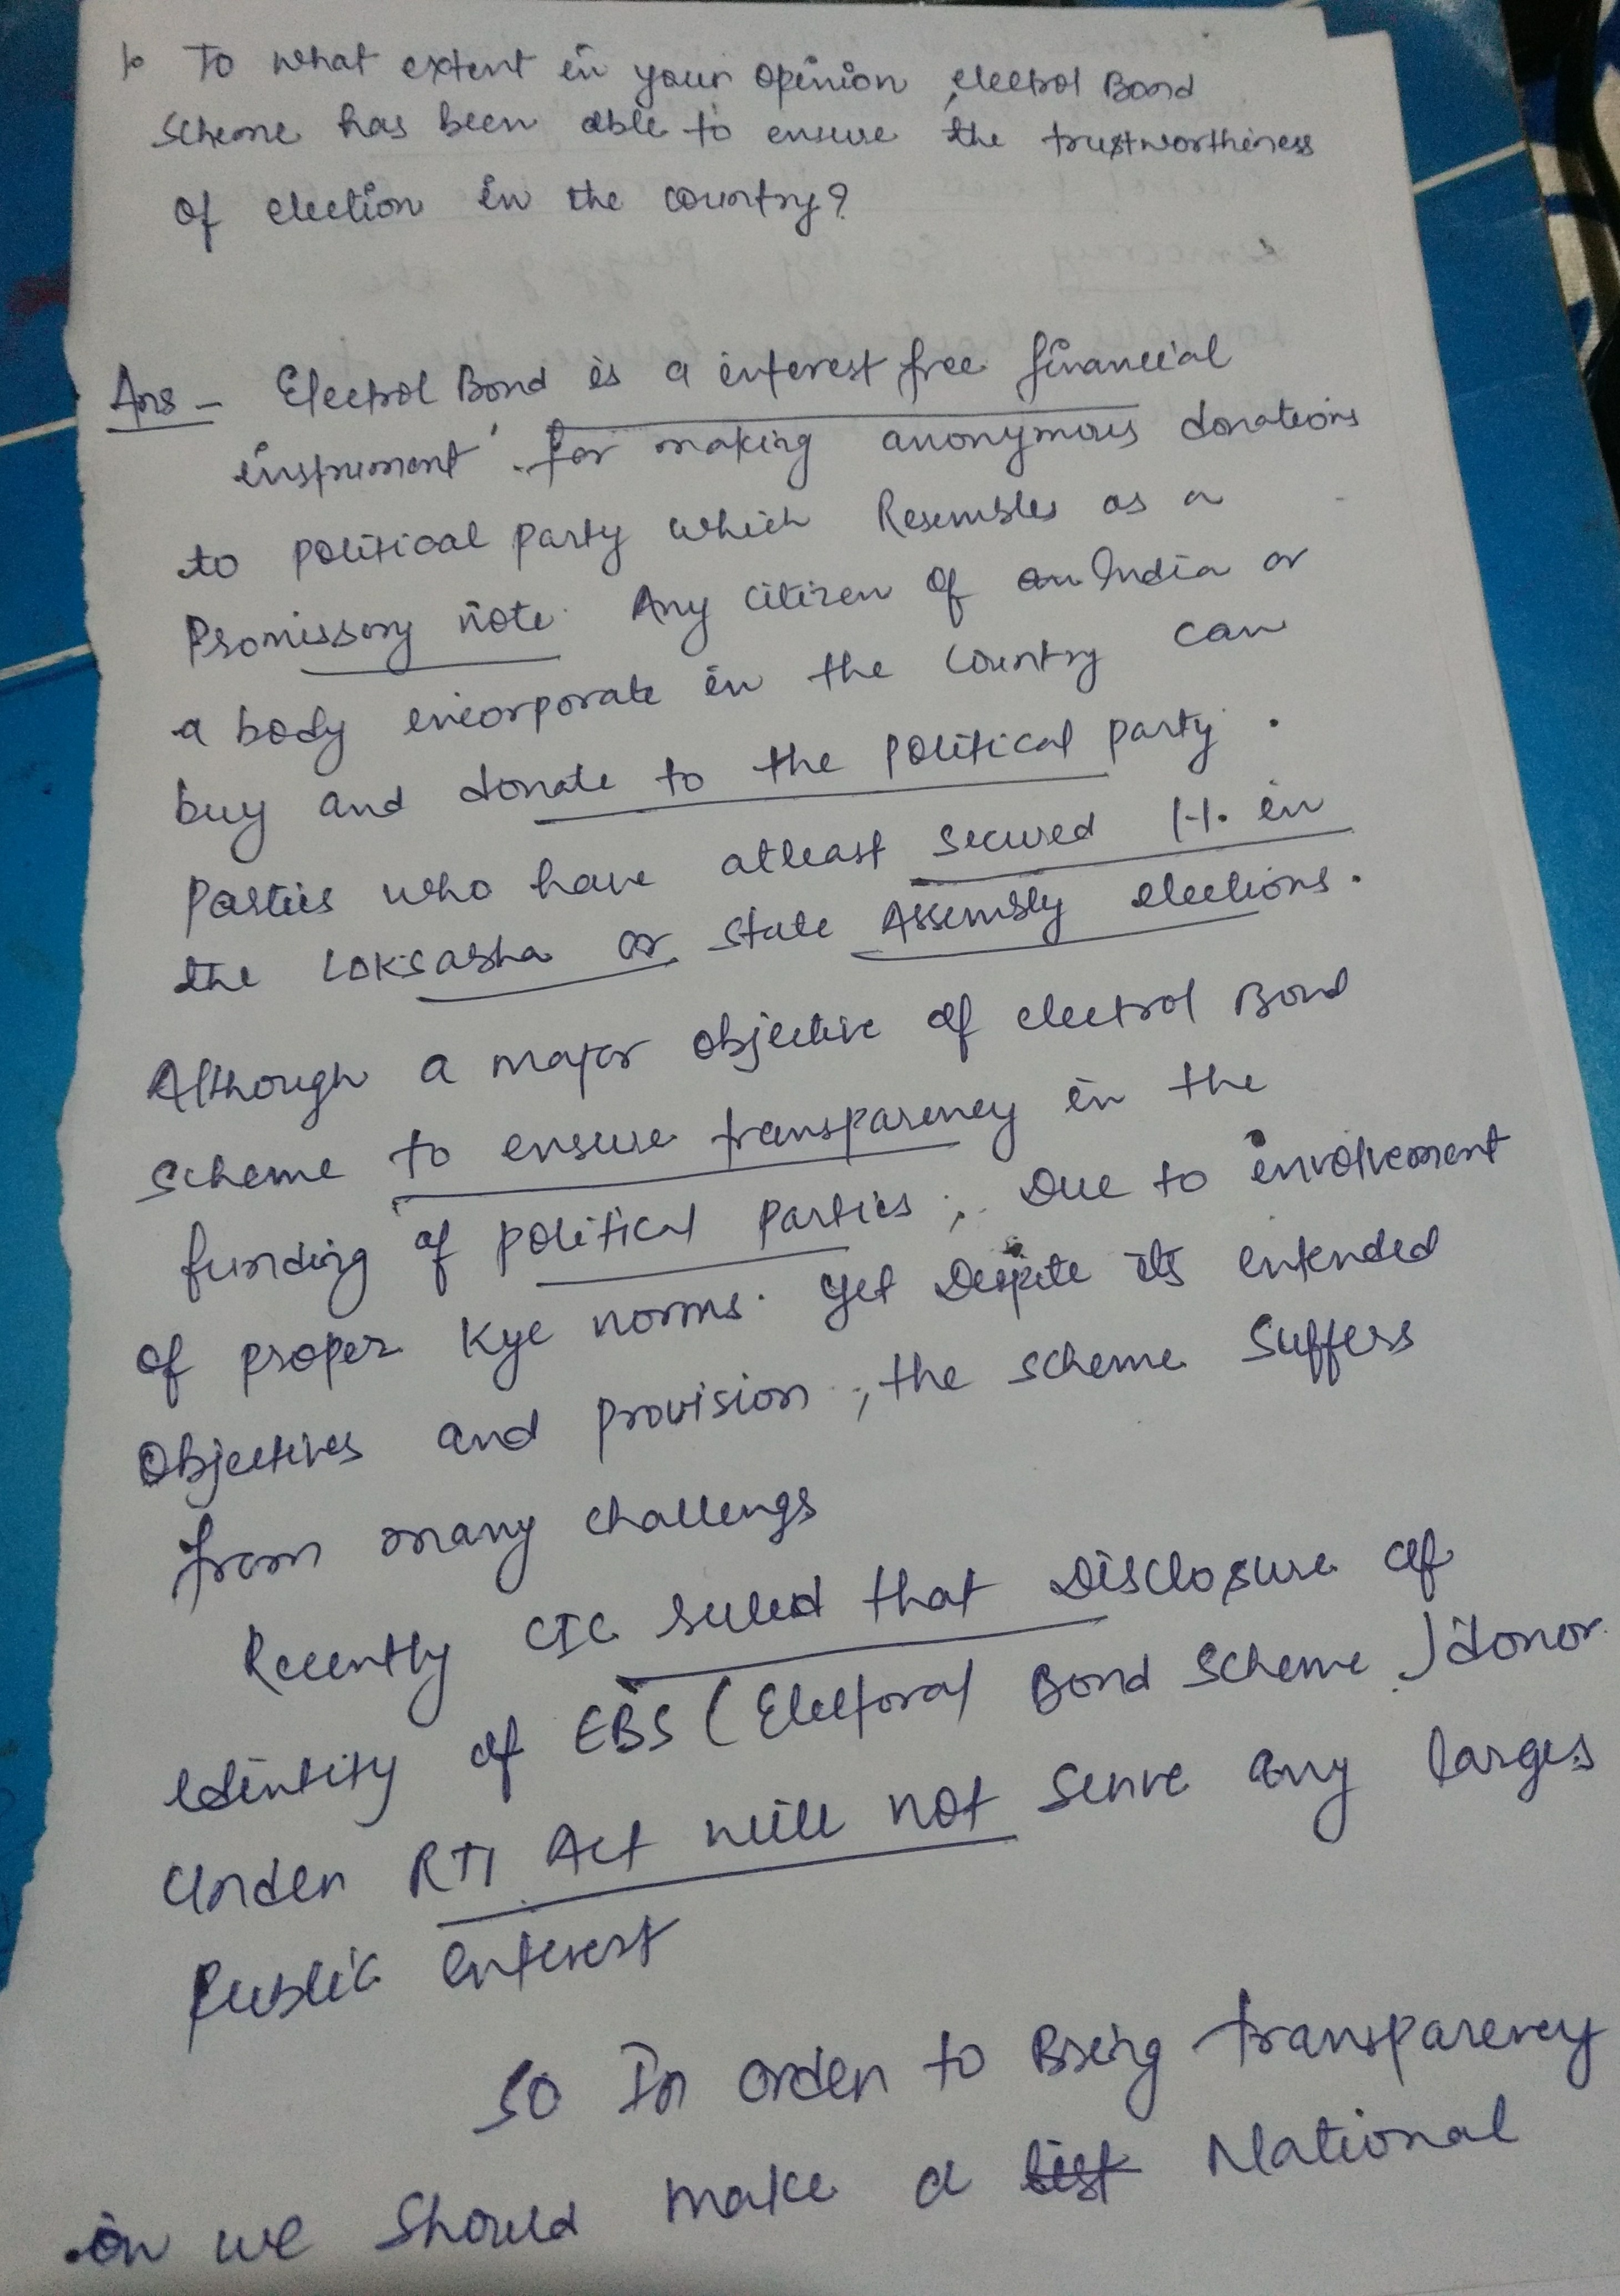 1. To what extent in your opinion, electrol Bond
Scheme has been able to ensure the trustworthiness
of election in the country?
Ans - Electrol Bond is a interest free financial
instrument for making anonymous donations
to political party which Resembles as a
Promissory note. Any citizen of an India or
a body incorporate in the country can
buy and donate to the political party.
Parties who have atleast secured 1%. in
the Loksabha or state Assembly elections.
Although a major objective of electrol Bond
scheme to ensure transparency in the
funding of political parties, Due to involvement
of proper Kyc norms. Yet Despite its intended
Objectives and provision, the scheme suffers
from many challengs
Recently CIC ruled that Disclosure of
Identity of EBS (Electoral Bond Scheme) donor
Under RTI Act will not serve any larges
Public interest
So In order to Bring transparency
in we should make a list National